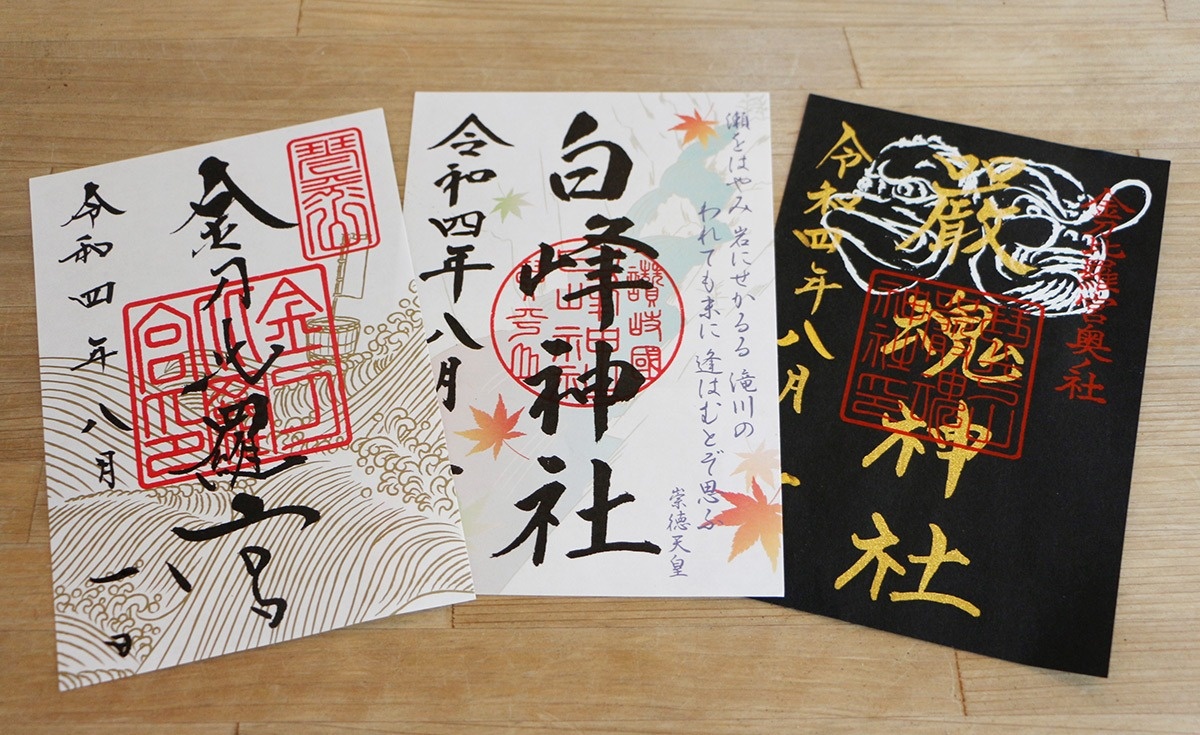 琴平山
金刀比羅宮
金刀比羅宮印
令和四年八月一日
瀬をはやみ岩にせかるる滝川の
われても末に逢はむとぞ思ふ
崇徳天皇
白峰神社
讃岐國
令和四年八月
金刀比羅宮奥ノ社
嚴魂神社
令和四年八月